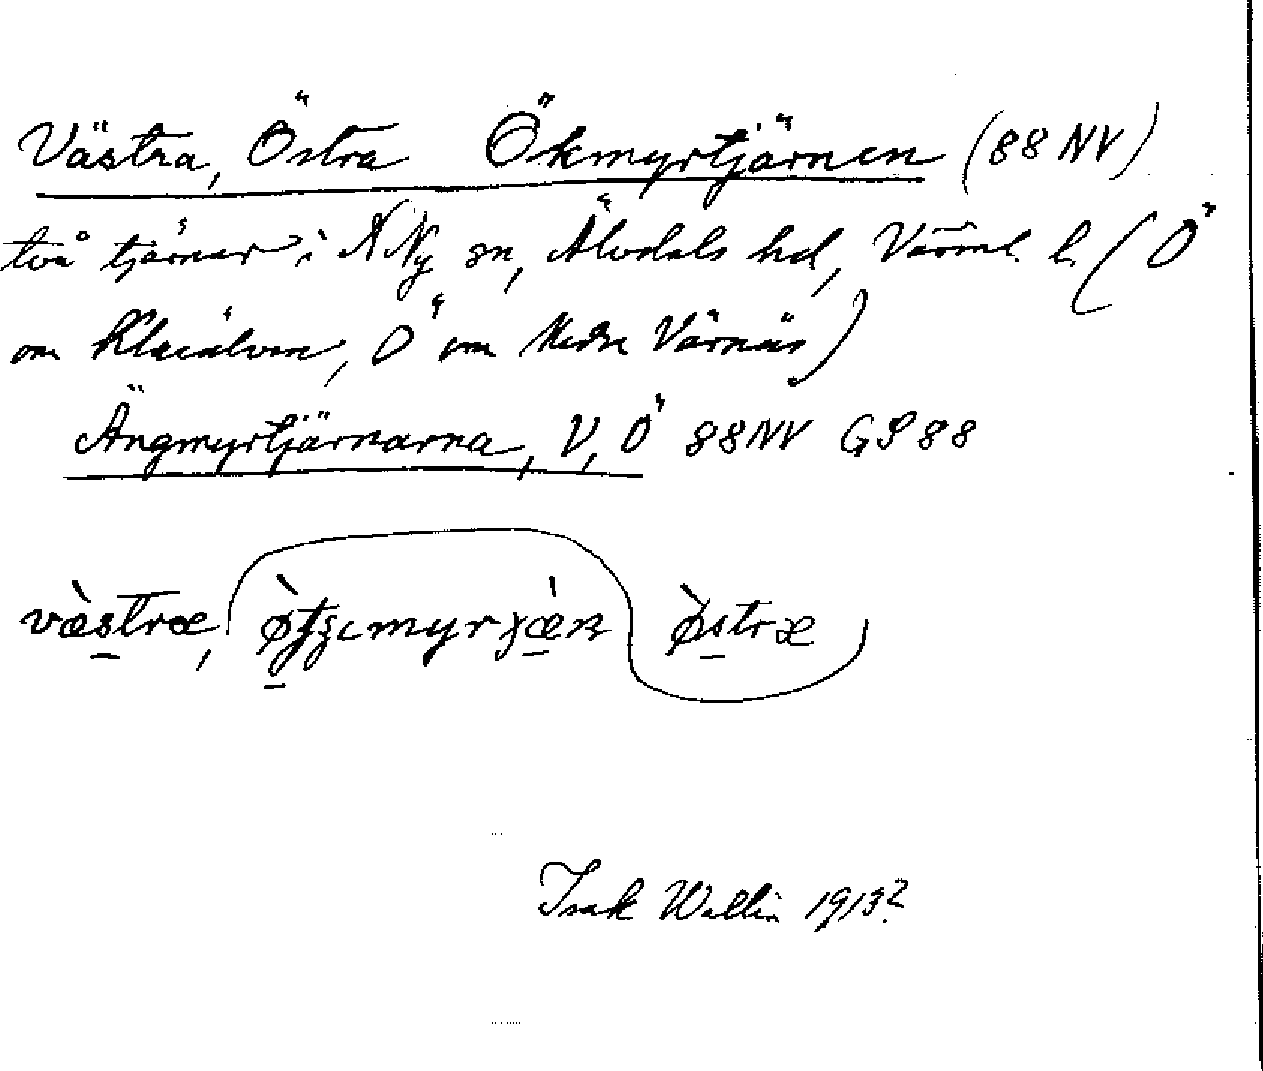 Västra, Östra Ökmyrtjärnen (88 NV)
två tjärnar i N Ny sn, Älvdals hd, Värml. l. (Ö
om Klarälven, Ö om Nedre Värnäs)
Ängmyrtjärnarna, V, Ö 88NV GS 88
væ̀stræ, østræ
Isak Wallin 1913?